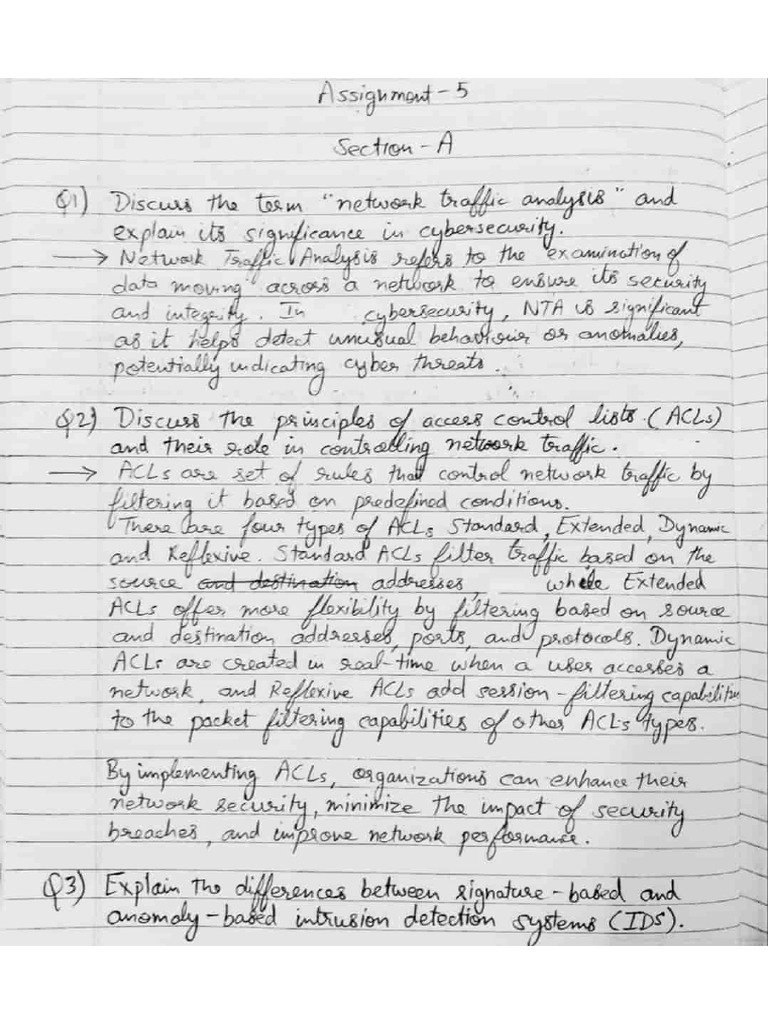 Assignment - 5
Section - A
Q1) Discuss the term "network traffic analysis" and
explain its significance in cybersecurity.
→ Network Traffic Analysis refers to the examination of
data moving across a network to ensure its security
and integrity. In cybersecurity, NTA is significant
as it helps detect unusual behaviour or anomalies,
potentially indicating cyber threats.
Q2) Discuss the principles of access control lists (ACLs)
and their role in controlling network traffic.
→ ACLs are set of rules that control network traffic by
filtering it based on predefined conditions.
There are four types of ACLs Standard, Extended, Dynamic
and Reflexive. Standard ACLs filter traffic based on the
source and destination addresses, while Extended
ACLs offer more flexibility by filtering based on source
and destination addresses, ports, and protocols. Dynamic
ACLs are created in real-time when a user accesses a
network, and Reflexive ACLs add session-filtering capabilities
to the packet filtering capabilities of other ACLs types.
By implementing ACLs, organizations can enhance their
network security, minimize the impact of security
breaches, and improve network performance.
Q3) Explain the differences between signature-based and
anomaly-based intrusion detection systems (IDS).